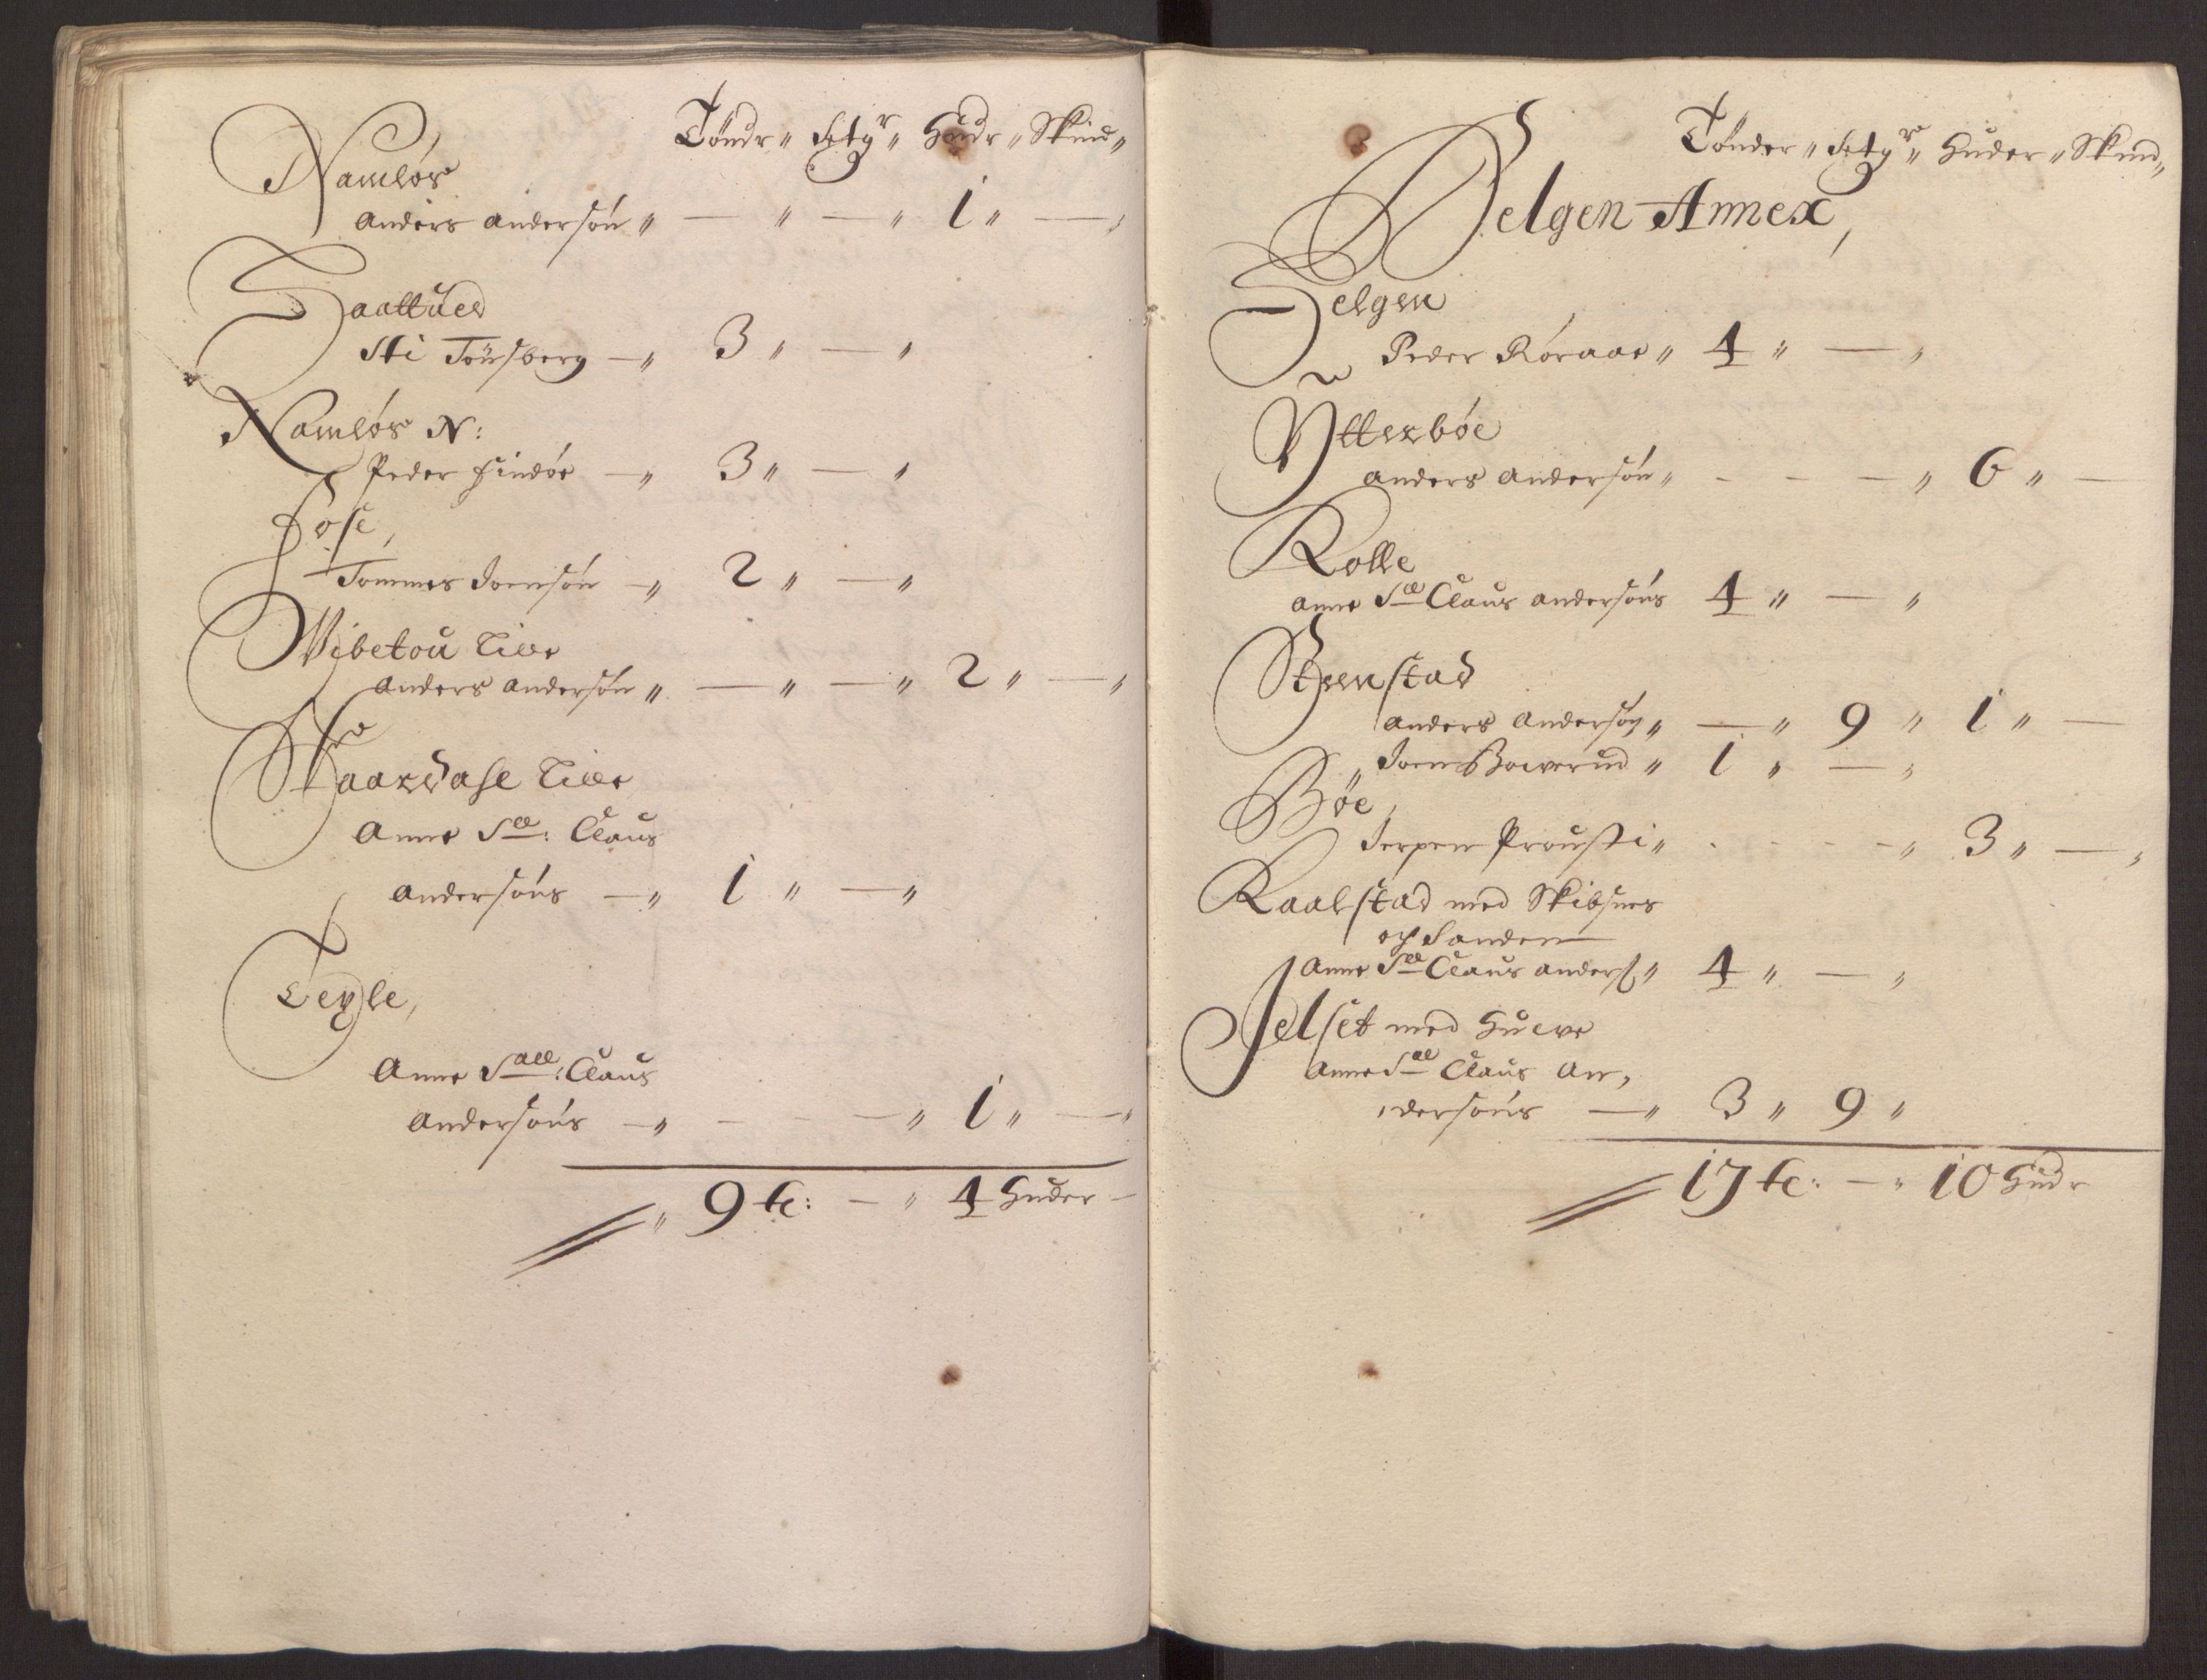 Töndr " Setgr " Hudr " Skind "
Namløs
Anders Andersøn " — " — " 1 " — "
Saattued
Sti Tønsberg — " 3 " — "
Namløs N:
Peder Hindøe — " 3 " — "
Fose,
Tommes Joensøn — " 2 " — "
Vibetou Lille
Anders Andersøn " — " — " 2 " — "
Aaredase Lille
Anne Sal: Claus
Andersøns — " 1 " — "
Teyle,
Anne Sall: Claus
Andersøns — " - - — " 1 " — "
" 9 tr: — " 4 Huder —
Tönder " Setgr " Huder " Skind "
Helgen Annex,
Helgen
Peder Roraae " 4 " — "
Ytterbøe
Anders Andersøn " - - — " 6 " —
Kolle
Anne Sal Claus Andersøns 4 " — "
Steenstad
Anders Andersøn " — " 9 " 1 " —
" Joen Bowerud " 1 " — "
Bøe,
Jerpen Prousti " - - - — " 3 " — "
Raalstad med Skibsnes
og Sanden
Anne Sal Claus Anders: " 4 " — "
Jelset med Hueve
Anne Sal Claus An,
,dersøns — " 3 " 9 "
17 tr: — " 10 Hudr